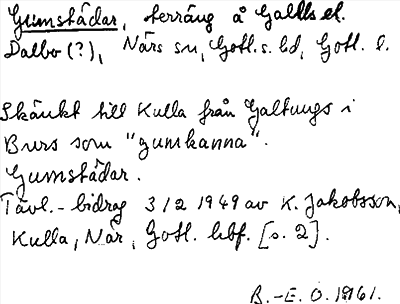 Gumstädar, terräng å Galtls el.
Dalbo (?), Närs sn, Gotl. s. hd, Gotl. l.
Skänkt till Kulla från Galtungs i
Burs som "gumkanna".
Gumstädar.
Tävl. - bidrag 3/2 1949 av K. Jakobsson,
Kulla, När, Gotl. hbf. [s. 2].
B.-E. Ö. 1961.